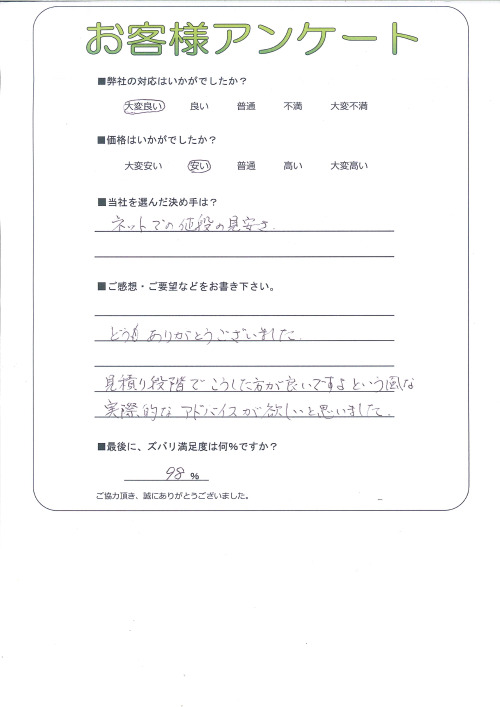 お客様アンケート
■弊社の対応はいかがでしたか？
大変良い 良い 普通 不満 大変不満
■価格はいかがでしたか？
大変安い 安い 普通 高い 大変高い
■当社を選んだ決め手は？
ネットでの値段の見安さ
■ご感想・ご要望などをお書き下さい。
どうも ありがとうございました.
見積り段階で こうした方が良いですよという風な
実際的な アドバイスが欲しいと思いました.
■最後に、ズバリ満足度は何％ですか？
98 ％
ご協力頂き、誠にありがとうございました。